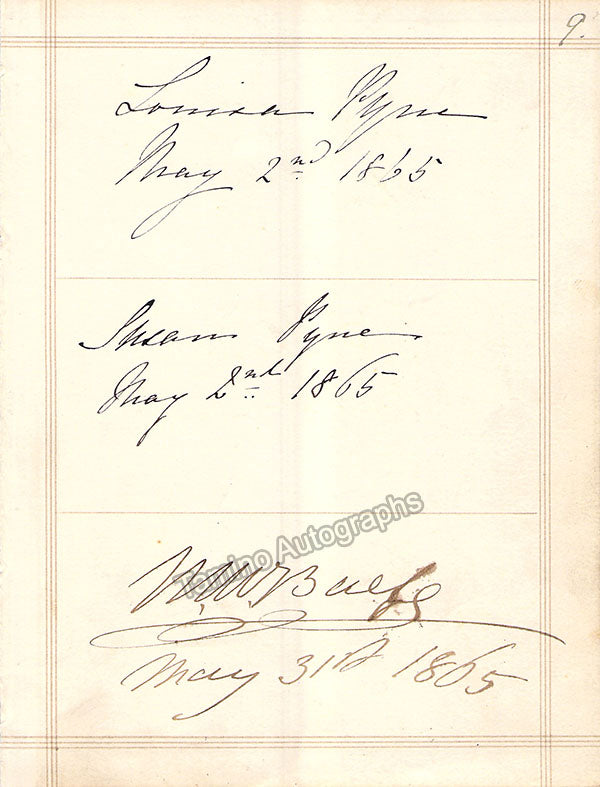 9.
Louisa Pyne
May 2nd 1865
Susan Pyne
May 2nd 1865
Tamino Autographs
M. W. Balfe
May 31st 1865